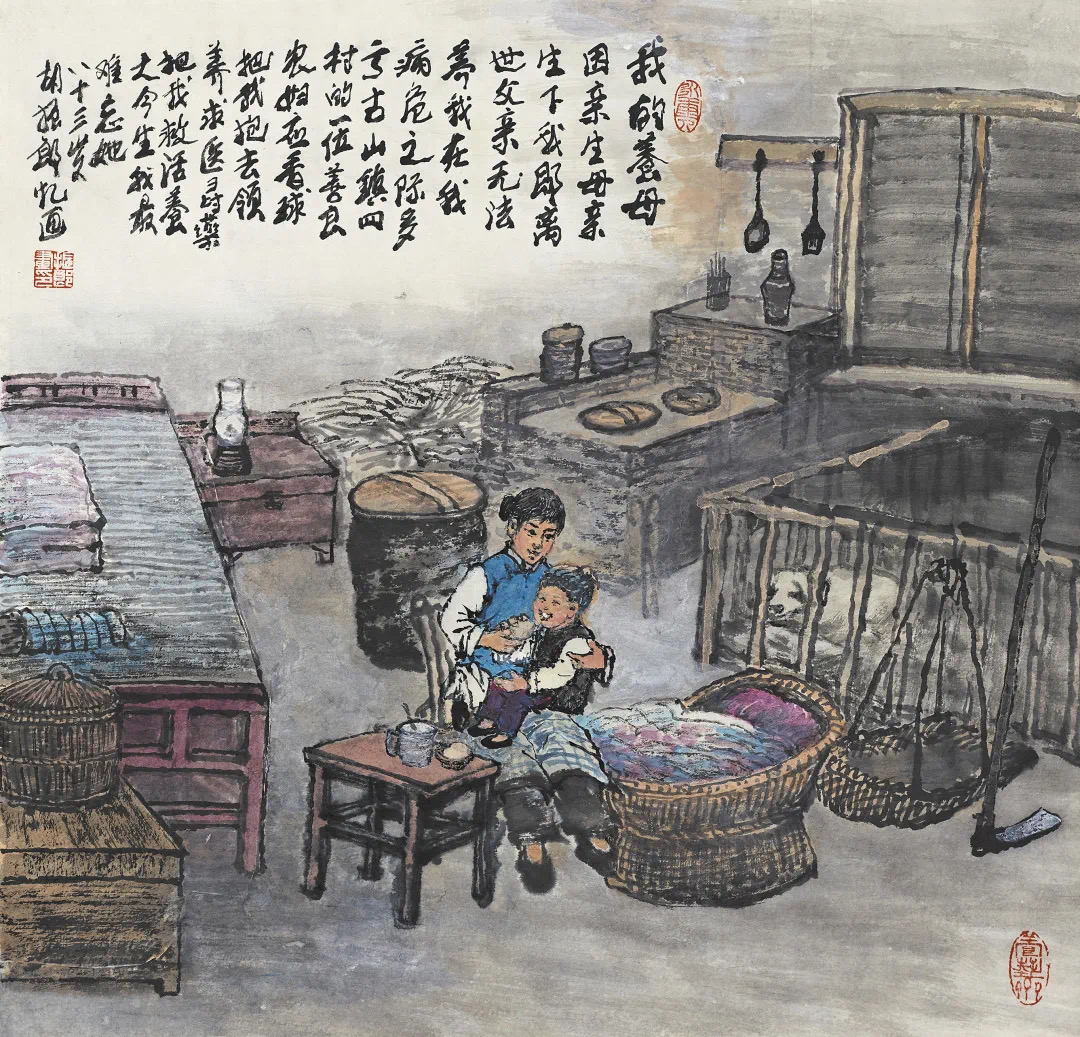 我的養母
因亲生母亲
生下我即离
世父亲无法
养我在我
病危之际多
亏古山镇四
村的一位善良
农妇应香球
把我抱去领
养求医寻药
把我救活养
大今生我最
难忘她
八十三岁
胡振郎忆画
振郎画印